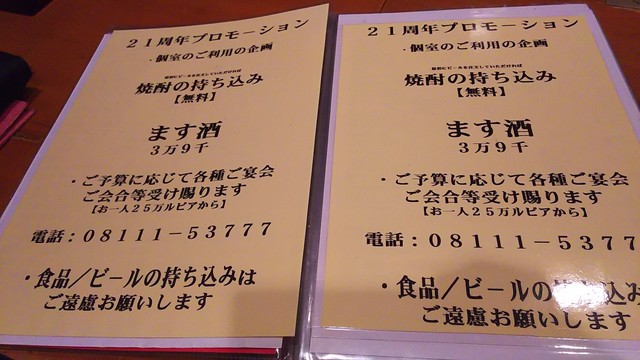 ２１周年プロモーション
・個室のご利用の企画
最初にビールを注文していただければ
焼酎の持ち込み
【無料】
ます酒
３万９千
・ご予算に応じて各種ご宴会
ご会合等受け賜ります
【お一人２５万ルピアから】
電話：０８１１１－５３７７７
・食品／ビールの持ち込みは
ご遠慮お願いします
２１周年プロモーション
・個室のご利用の企画
最初にビールを注文していただければ
焼酎の持ち込み
【無料】
ます酒
３万９千
・ご予算に応じて各種ご宴会
ご会合等受け賜ります
【お一人２５万ルピアから】
電話：０８１１１－５３７７
・食品／ビールの持ち込み
ご遠慮お願いします